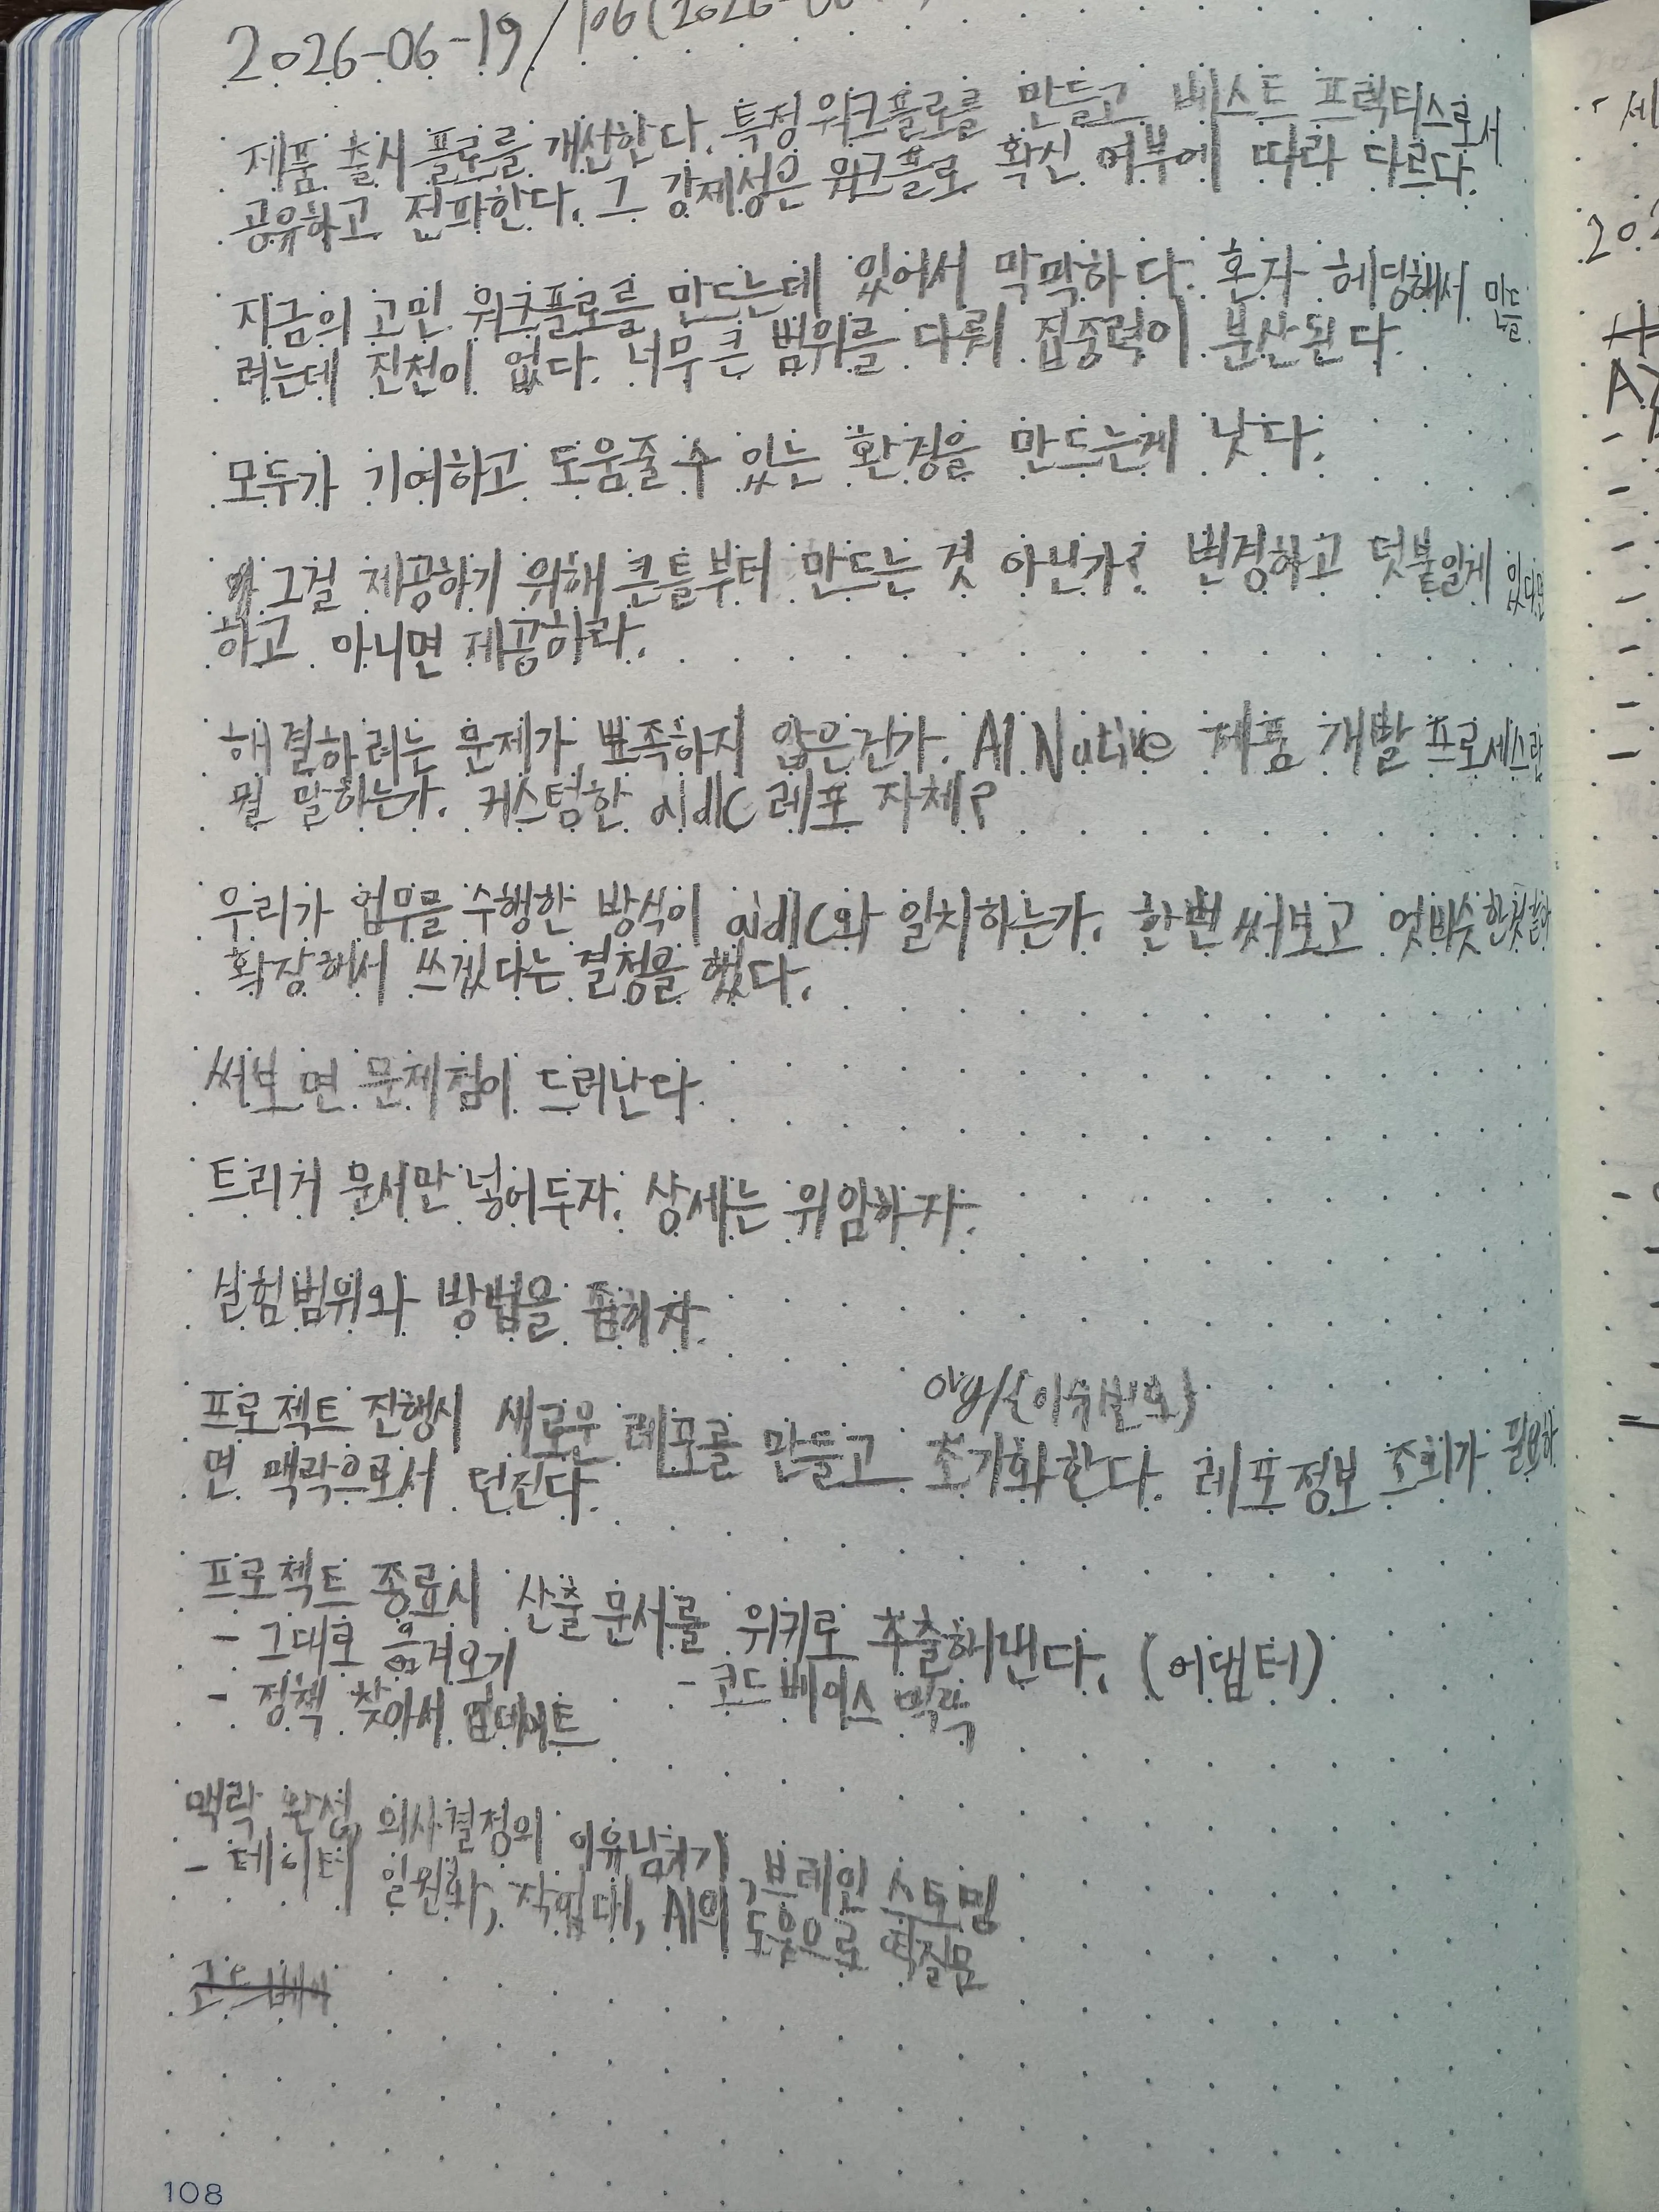 2026-06-19/106(2026-06
제품 출시 플로를 개선한다. 특정 워크플로를 만들고 베스트 프렉티스로서
공유하고 전파한다. 그 강제성은 워크플로 확신 여부에 따라 다르다.
지금의 고민 워크플로를 만드는데 있어서 막막하다. 혼자 헤딩해서 만들
려는데 진천이 없다. 너무 큰 범위를 다뤄 집중력이 분산된다.
모두가 기여하고 도움줄 수 있는 환경을 만드는게 낫다.
그걸 제공하기 위해 큰 틀부터 만드는 것 아닌가? 변경하고 덧붙일게 있다면
하고 아니면 제공하라.
해결하려는 문제가 뾰족하지 않은건가. AI Native 제품 개발 프로세스란
뭘 말하는가. 커스텀한 aidlc 레포 자체?
우리가 업무를 수행한 방식이 aidlc와 일치하는가. 한번 써보고 엇비슷한것 같아
확장해서 쓰겠다는 결정을 했다.
써보면 문제점이 드러난다.
트리거 문서만 넣어두자. 상세는 위임하자.
실험범위와 방법을 좁히자.
org/{이슈번호}
프로젝트 진행시 새로운 레포를 만들고 초기화한다. 레포정보 조회가 필요하
면 맥락으로서 던진다.
프로젝트 종료시 산출문서를 위키로 추출해낸다. (어댑터)
- 그대로 옮겨오기
- 정책 찾아서 업데이트 - 코드베이스 맥락
맥락 완성, 의사결정의 이유남기기, 브레인 스토밍
- 데이터 일원화, 작업대, AI의 도움으로 역질문
108